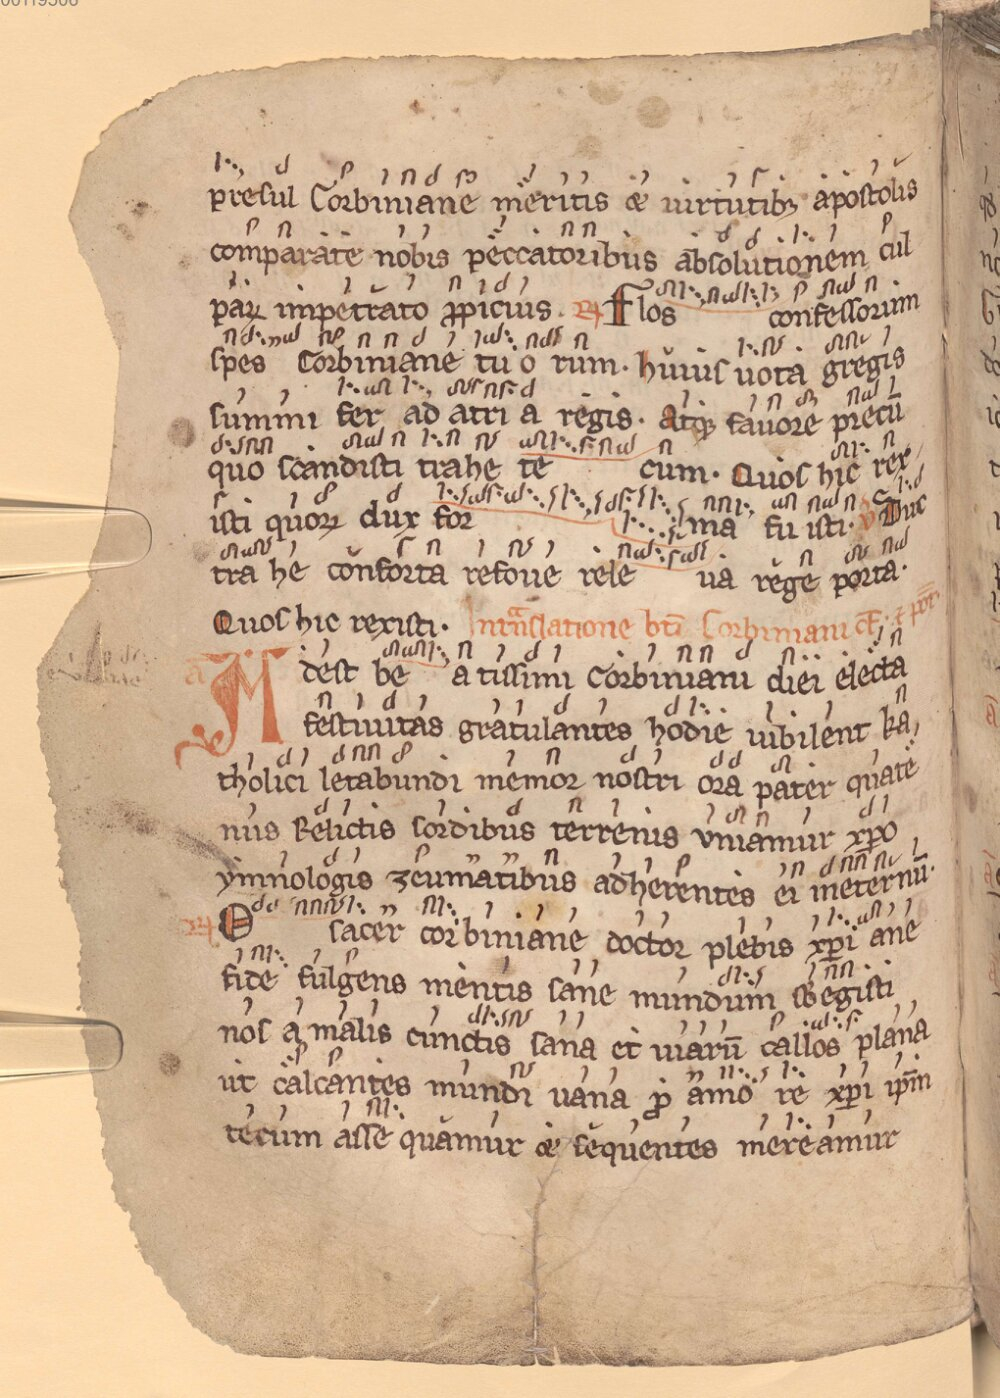 00119506
presul Corbiniane meritis & uirtutibꝫ apostolis
comparate nobis peccatoribus absolutionem cul
parꝝ impetrato ꝓpicius. R Flos confessorum
spes Corbiniane tu o rum. huius uota gregis
summi fer ad atri a regis. Atqꝫ fauore precū
quo scandisti trahe te cum. Quos hic rex
isti quorꝝ dux for ma fu isti. V Duc
tra he conforta refoue rele ua rege porta.
Quos hic rexisti. In trāslatione bti Corbiniani cf. & pōt
a Adest be a tissimi Corbiniani diei electa
festiuitas gratulantes hodie iubilent ka
tholici letabundi memor nostri ora pater quate
nus Relictis sordibus terrenis vniamur xp̄o
ymnologis zeumatibus adherentes ei ineternū.
R O sacer corbiniane doctor plebis xp̄i ane
fide fulgens mentis sane mundum sb̄egisti
nos a malis cunctis sana et uiarū callos plana
ut calcantes mundi uana ꝓ amo re xp̄i ip̄m
tecum asse quamur & sequentes mereamur